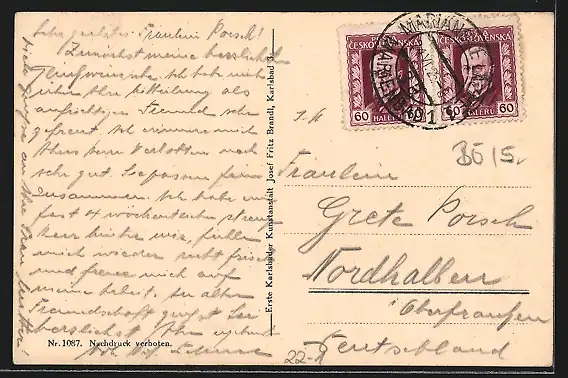 Sehr geehrtes Fräulein Porsch!
Zunächst meine herzlichsten
Glückwünsche. Ich habe mich
über Ihre Mitteilung als
aufrichtiger Freund sehr
gefreut. Ich erinnere mich
Ihres Herrn Verlobten noch
sehr gut. Sie passen fein
zusammen. Ich habe eine
fast 4 wöchentliche strenge
Kur hinter mir, fühle
mich wieder recht frisch
und freue mich auf
meine Arbeit. In alter
Freundschaft grüßt Sie
herzlichst Ihr ergebener
Viele Grüße an Ihre Frau Mutter
Nr. 1087. Nachdruck verboten.
Erste Karlsbader Kunstanstalt Josef Fritz Brandl, Karlsbad 3.
POŠTA ČESKOSLOVENSKÁ
60 HALÉŘŮ 60
ČESKOSLOVENSKÁ
60 HALÉŘŮ 60
MARIÁNSKÉ LÁZNĚ
MARIENBAD
1
BÖ 15.
Fräulein
Grete Porsch
Nordhalben
Oberfranken
Deutschland
22-1